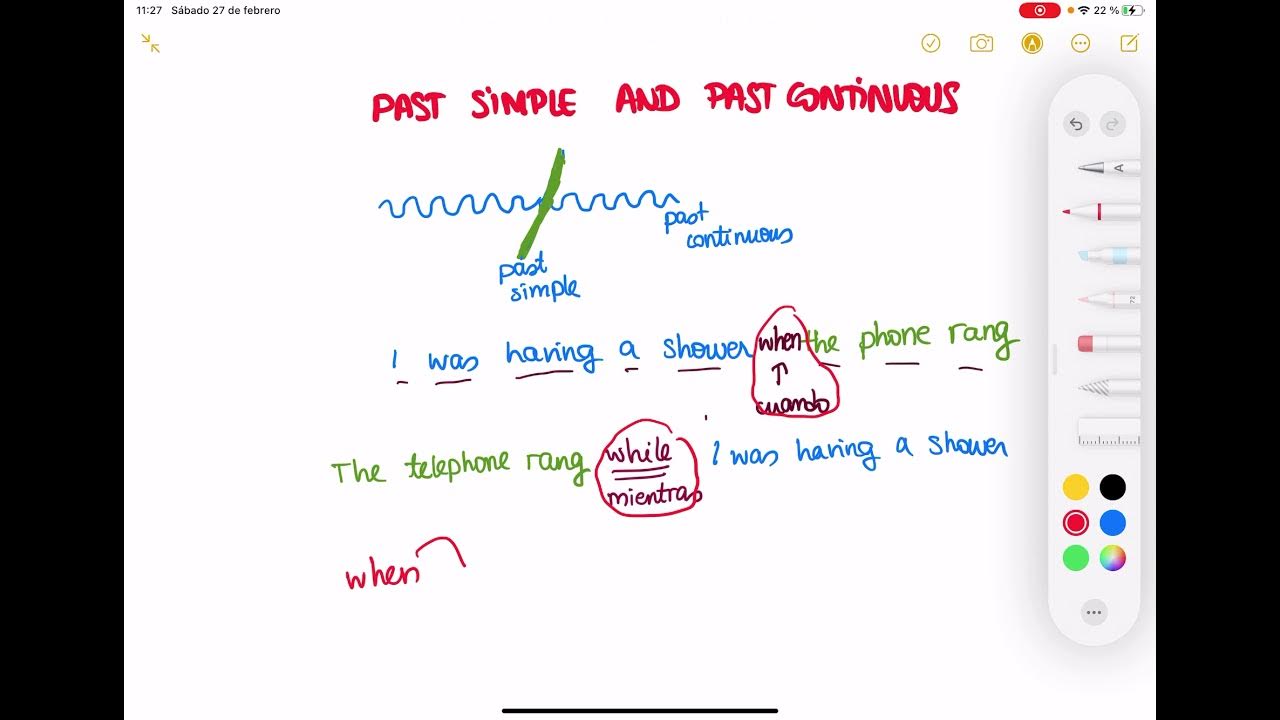 11:27 Sábado 27 de febrero 22 %
PAST SIMPLE AND PAST CONTINUOUS
past
continuous
past
simple
I was having a shower when the phone rang
cuando
The telephone rang while I was having a shower
mientras
when